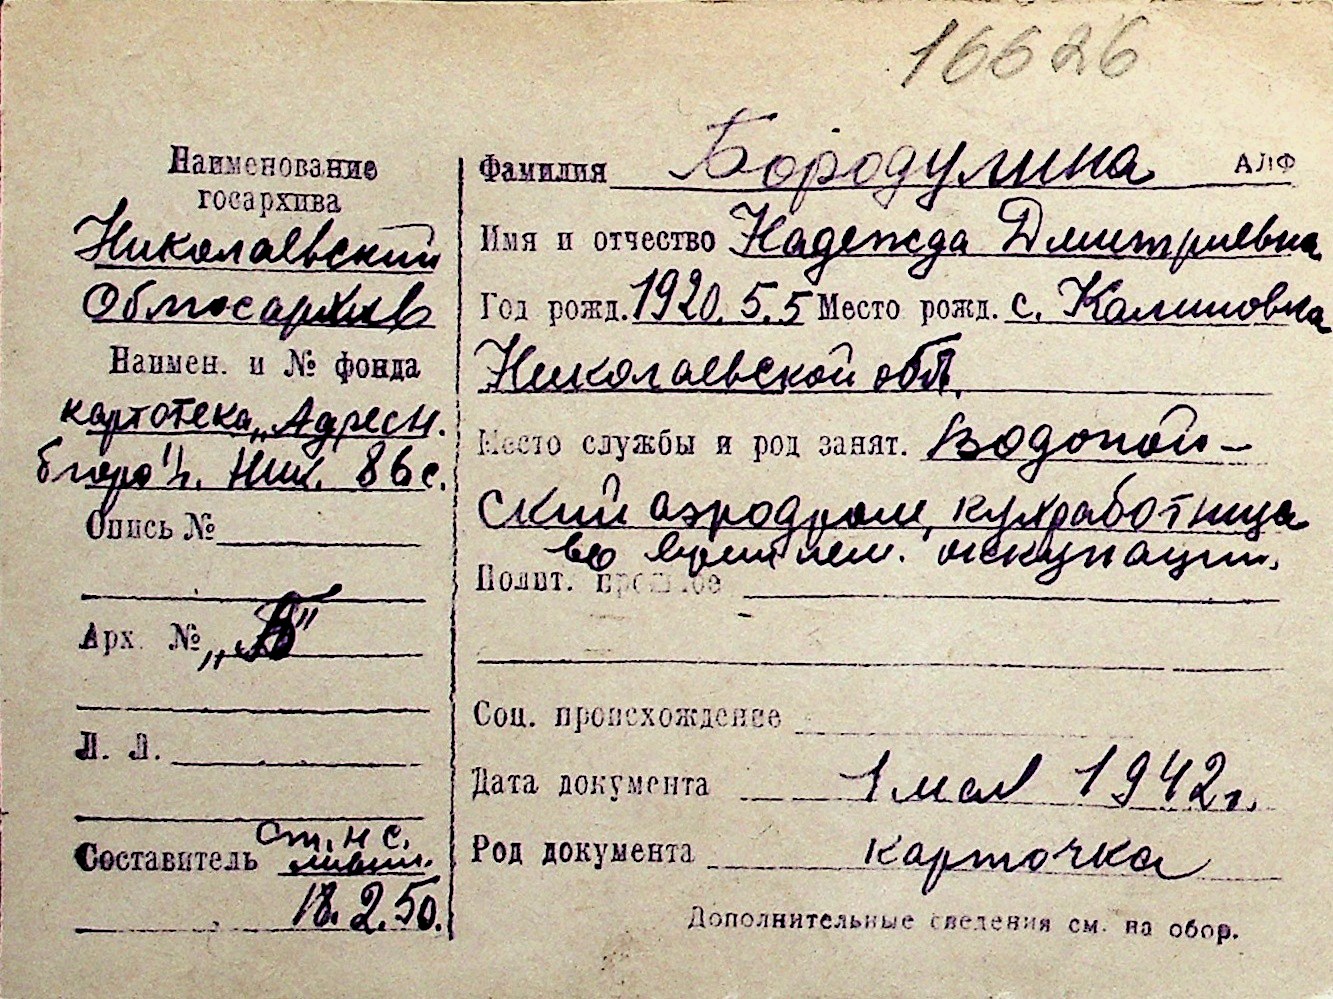 16626
Наименование
госархива
Николаевский
Облгосархив
Наимен. и № фонда
картотека „Адресн.
бюро" г. Ник. 86 с.
Опись №
Арх. № „Б"
Л. Л.
Составитель ст. н с.
18.2.50.
Фамилия Бородулина АЛФ
Имя и отчество Надежда Дмитриевна
Год рожд. 1920. 5. 5 Место рожд. с. Калиновка
Николаевской обл.
Место службы и род занят. Водопой-
ский аэродром, кухработница
во время нем. оккупации.
Полит. прошлое
Соц. происхождение
Дата документа 1 мая 1942 г.
Род документа карточка
Дополнительные сведения см. на обор.